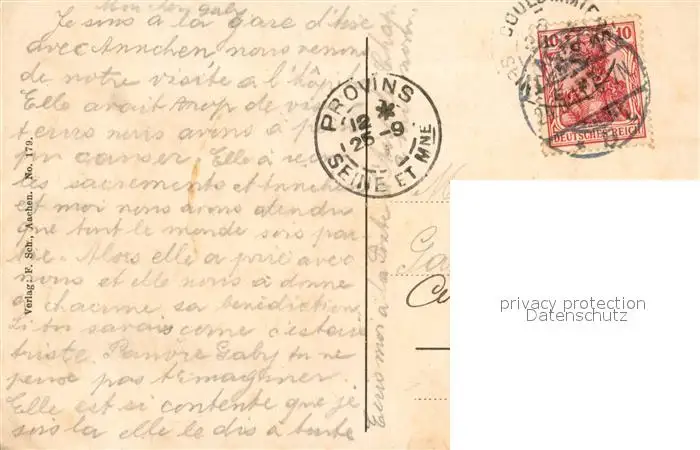 Mon cher Gaby
Je suis a la gare d'Aix
avec Annchen nous venons
de notre visite a l'hôpit
Elle avait trop de visi
teurs nous avons à p
pu causer. Elle à reçu
les sacrements et Annchen
et moi nous avons atendu
que tout le monde sois par
tie. Alors elle a prié avec
nous et elle nous à donne
a chacune sa bénédiction
Si tu savais come c'étai
triste. Pauvre Gaby tu ne
peux pas t'imaginer.
Elle est si contente que je
sois la elle le dis à toute
Ecris moi à la Poste
Verlag: F. Sch., Aachen. No. 179.
PROVINS
12 * 9
25
SEINE ET MNE
COULOMMIERS
10 10
DEUTSCHES REICH
M
Ga
privacy protection
Datenschutz